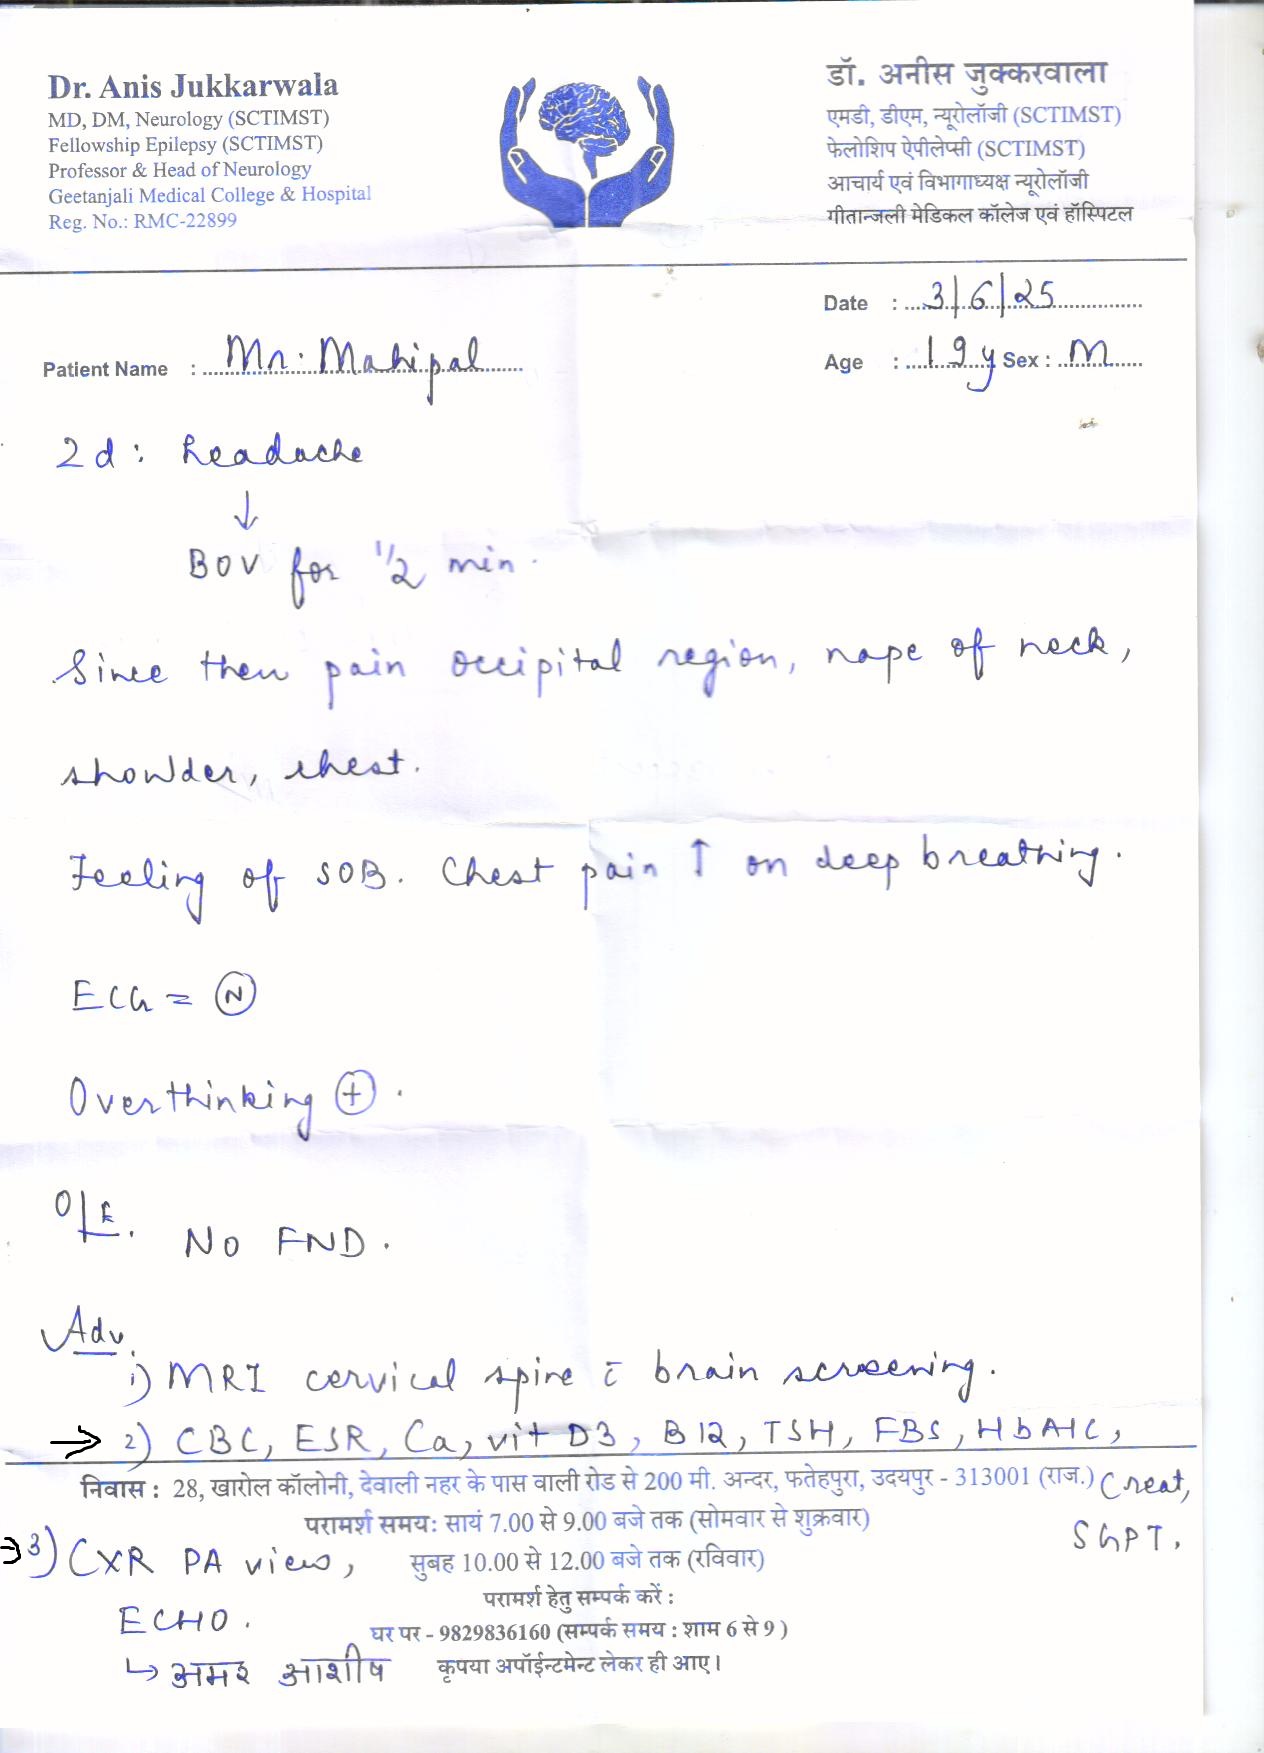 Dr. Anis Jukkarwala
MD, DM, Neurology (SCTIMST)
Fellowship Epilepsy (SCTIMST)
Professor & Head of Neurology
Geetanjali Medical College & Hospital
Reg. No.: RMC-22899
डॉ. अनीस जुक्करवाला
एमडी, डीएम, न्यूरोलॉजी (SCTIMST)
फेलोशिप ऐपीलेप्सी (SCTIMST)
आचार्य एवं विभागाध्यक्ष न्यूरोलॉजी
गीतान्जली मेडिकल कॉलेज एवं हॉस्पिटल
Date : 3/6/25
Patient Name : Mr. Mahipal
Age : 19y Sex : M
2d: headache
↓
BOV for 1/2 min.
Since then pain occipital region, nape of neck,
showlder, chest.
Feeling of SOB. Chest pain ↑ on deep breathing.
ECG = Ⓝ
Overthinking ⊕.
O/E.
NO FND.
Adv.
1) MRI cervical spine c̄ brain screening.
→ 2) CBC, ESR, Ca, vit D3, B12, TSH, FBS, HbA1C,
Creat,
SGPT.
निवास : 28, खारोल कॉलोनी, देवाली नहर के पास वाली रोड से 200 मी. अन्दर, फतेहपुरा, उदयपुर - 313001 (राज.)
परामर्श समय: सायं 7.00 से 9.00 बजे तक (सोमवार से शुक्रवार)
सुबह 10.00 से 12.00 बजे तक (रविवार)
परामर्श हेतु सम्पर्क करें :
घर पर - 9829836160 (सम्पर्क समय : शाम 6 से 9 )
कृपया अपॉईन्टमेन्ट लेकर ही आए।
→ 3) CXR PA view,
ECHO.
↳ अमर आशीष